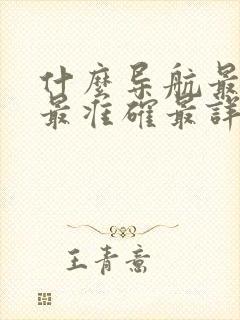 什麼导航最
最准確最詳
王青意